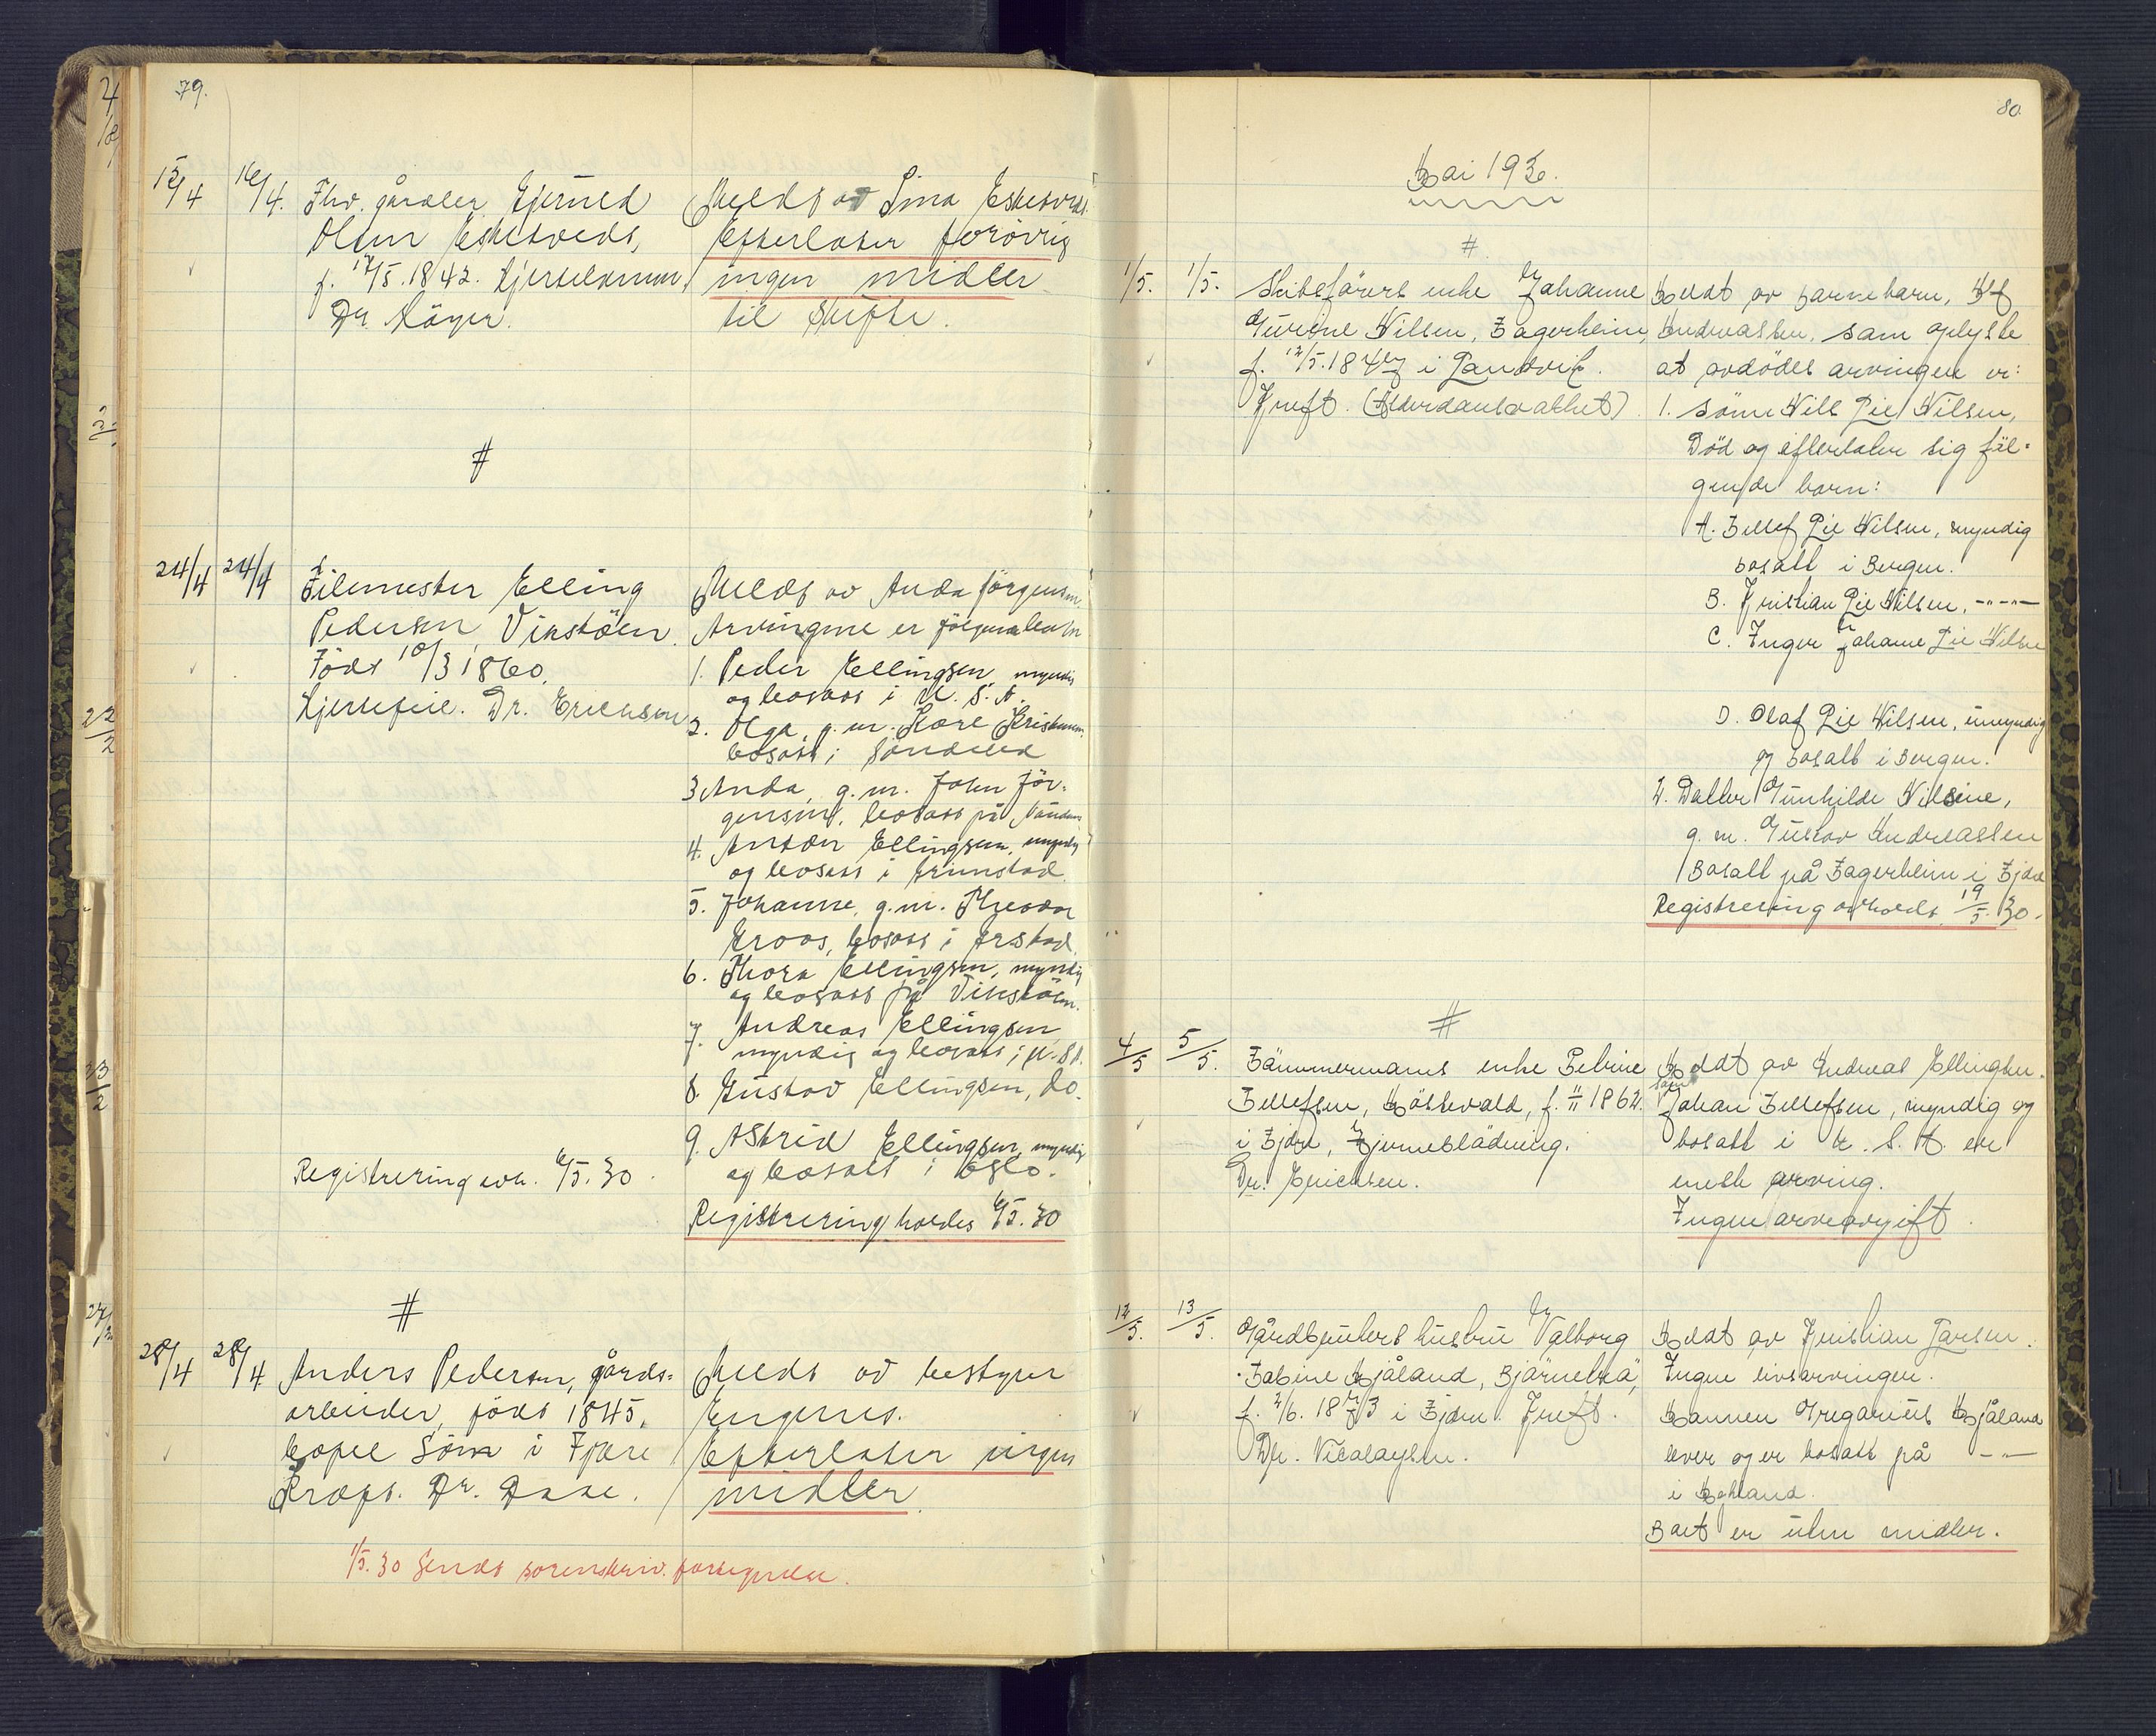 79.
15/4 16/4. Fhv. gårdeier Gjeruld
Olsen Eskedveds,
f. 17/5.1842. Hjertelammelse
Dr. Röyer.
Meldt av Sina Eskedveds.
Efterlater forövrig
ingen midler
til skifte.
#
24/4 24/4 Seilemester Elling
Pedersen, Vikstölen.
Födt 10/3 1860.
Hjertefeil. Dr. Erichsen
Meldt av Anda Jörgensen.
Arvingene er fölgende barn
1. Peder Ellingsen, myndig
og bosatt i U. S. A.
2. Olga, g. m. Kåre Kristensen,
bosatt i
3 Anda, g. m. John Jör-
gensen, bosatt på
4. Anton Ellingsen, myndig
og bosatt i Grimstad.
5. Johanne, g.m. Theodor
Kroos, bosatt i
6. Thora Ellingsen, myndig
og bosatt på Vikstölen.
7. Andreas Ellingsen
myndig og bosatt i U. S. A.
8. Gustav Ellingsen, do.
9. Astrid Ellingsen, myndig
og bosatt i Oslo.
Registrering avh. 6/5. 30
Registrering holdes 6/5. 30
#
28/4 28/4 Anders Pedersen, gårds-
arbeider, födt 1845,
bopel Söm i Fjære
Kræft. Dr. Dake.
Meldt av bestyrer
Engenes.
Efterlater ingen
midler.
1/5. 30 Sendt sorenskriv. fortegnelse.
80
Mai 1930.
#
1/5. 1/5. Skibsförers enke Johanne
Gurine Nilsen, Fagerheim,
f. 12/5.1847 i Landvik.
Kreft. (Alderdomssvakhet).
Meldt av barnebarn, Alf
Andreassen, som oplyste
at avdödes arvinger er:
1. Sönn Nils Pie Nilsen,
Död og efterlater sig föl-
gende barn:
A. Tellef Pie Nilsen, myndig
bosatt i Bergen.
B. Kristian Pie Nilsen, -"-"-
C. Inger Johanne Pie Nilsen
D. Olaf Pie Nilsen, umyndig
og bosatt i Bergen.
2. Datter Gunhilde Nilsine,
g. m. Gustav Andreassen
Bosatt på Fagerheim i Fjære
Registrering avholdt 19/5. 30.
#
4/5 5/5. Tömmermanns enke Petrine
Tellefsen, Möllevold, f. 11/11 1862.
i Fjære, Hjerneblödning.
Dr. Erichsen.
Meldt av Andreas Ellingsen.
Sönn Johan Tellefsen, myndig og
bosatt i U. S. A. er
eneste arving.
Ingen arveavgift.
12/5. 13/5. Gårdbrukers hustru Valborg
Tabine Mjåland,
f. 2/6. 1873 i Fjære. Kreft.
Dr. Nicolaysen.
Meldt av Kristian Larsen.
Ingen livsarvinger.
Mannen Gregarius Mjåland
lever og er bosatt på -"-
i
Boet er uten midler.